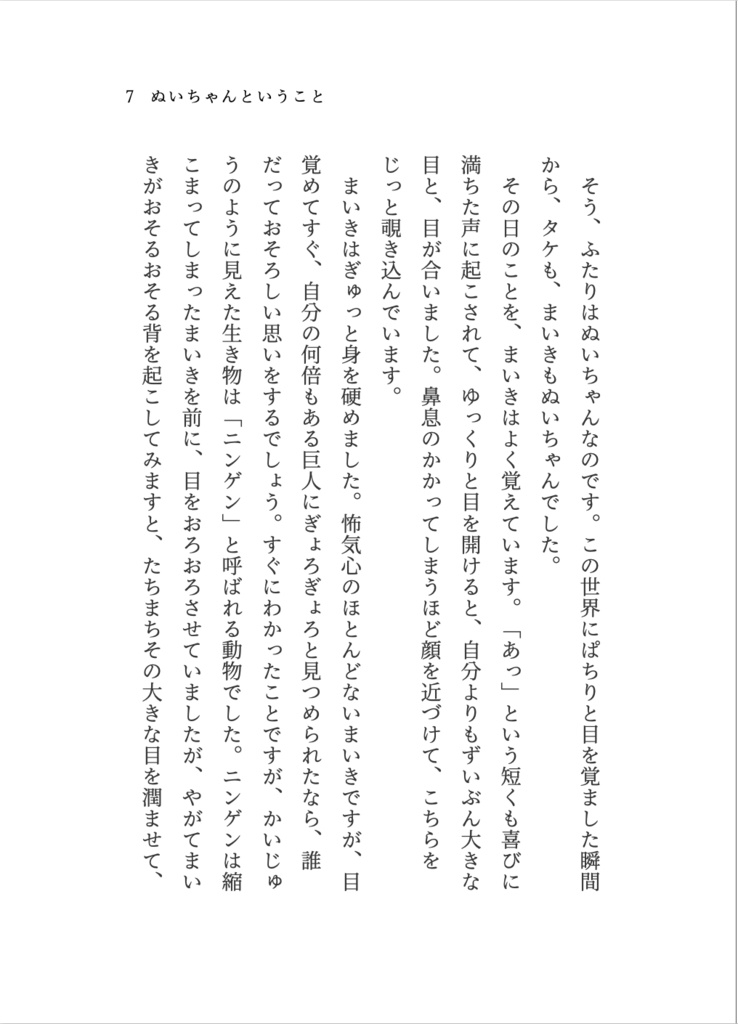 7 ぬいちゃんということ
そう、ふたりはぬいちゃんなのです。この世界にぱちりと目を覚ました瞬間
から、タケも、まいきもぬいちゃんでした。
その日のことを、まいきはよく覚えています。「あっ」という短くも喜びに
満ちた声に起こされて、ゆっくりと目を開けると、自分よりもずいぶん大きな
目と、目が合いました。鼻息のかかってしまうほど顔を近づけて、こちらを
じっと覗き込んでいます。
まいきはぎゅっと身を硬めました。怖気心のほとんどないまいきですが、目
覚めてすぐ、自分の何倍もある巨人にぎょろぎょろと見つめられたなら、誰
だっておそろしい思いをするでしょう。すぐにわかったことですが、かいじゅ
うのように見えた生き物は「ニンゲン」と呼ばれる動物でした。ニンゲンは縮
こまってしまったまいきを前に、目をおろおろさせていましたが、やがてまい
きがおそるおそる背を起こしてみますと、たちまちその大きな目を潤ませて、